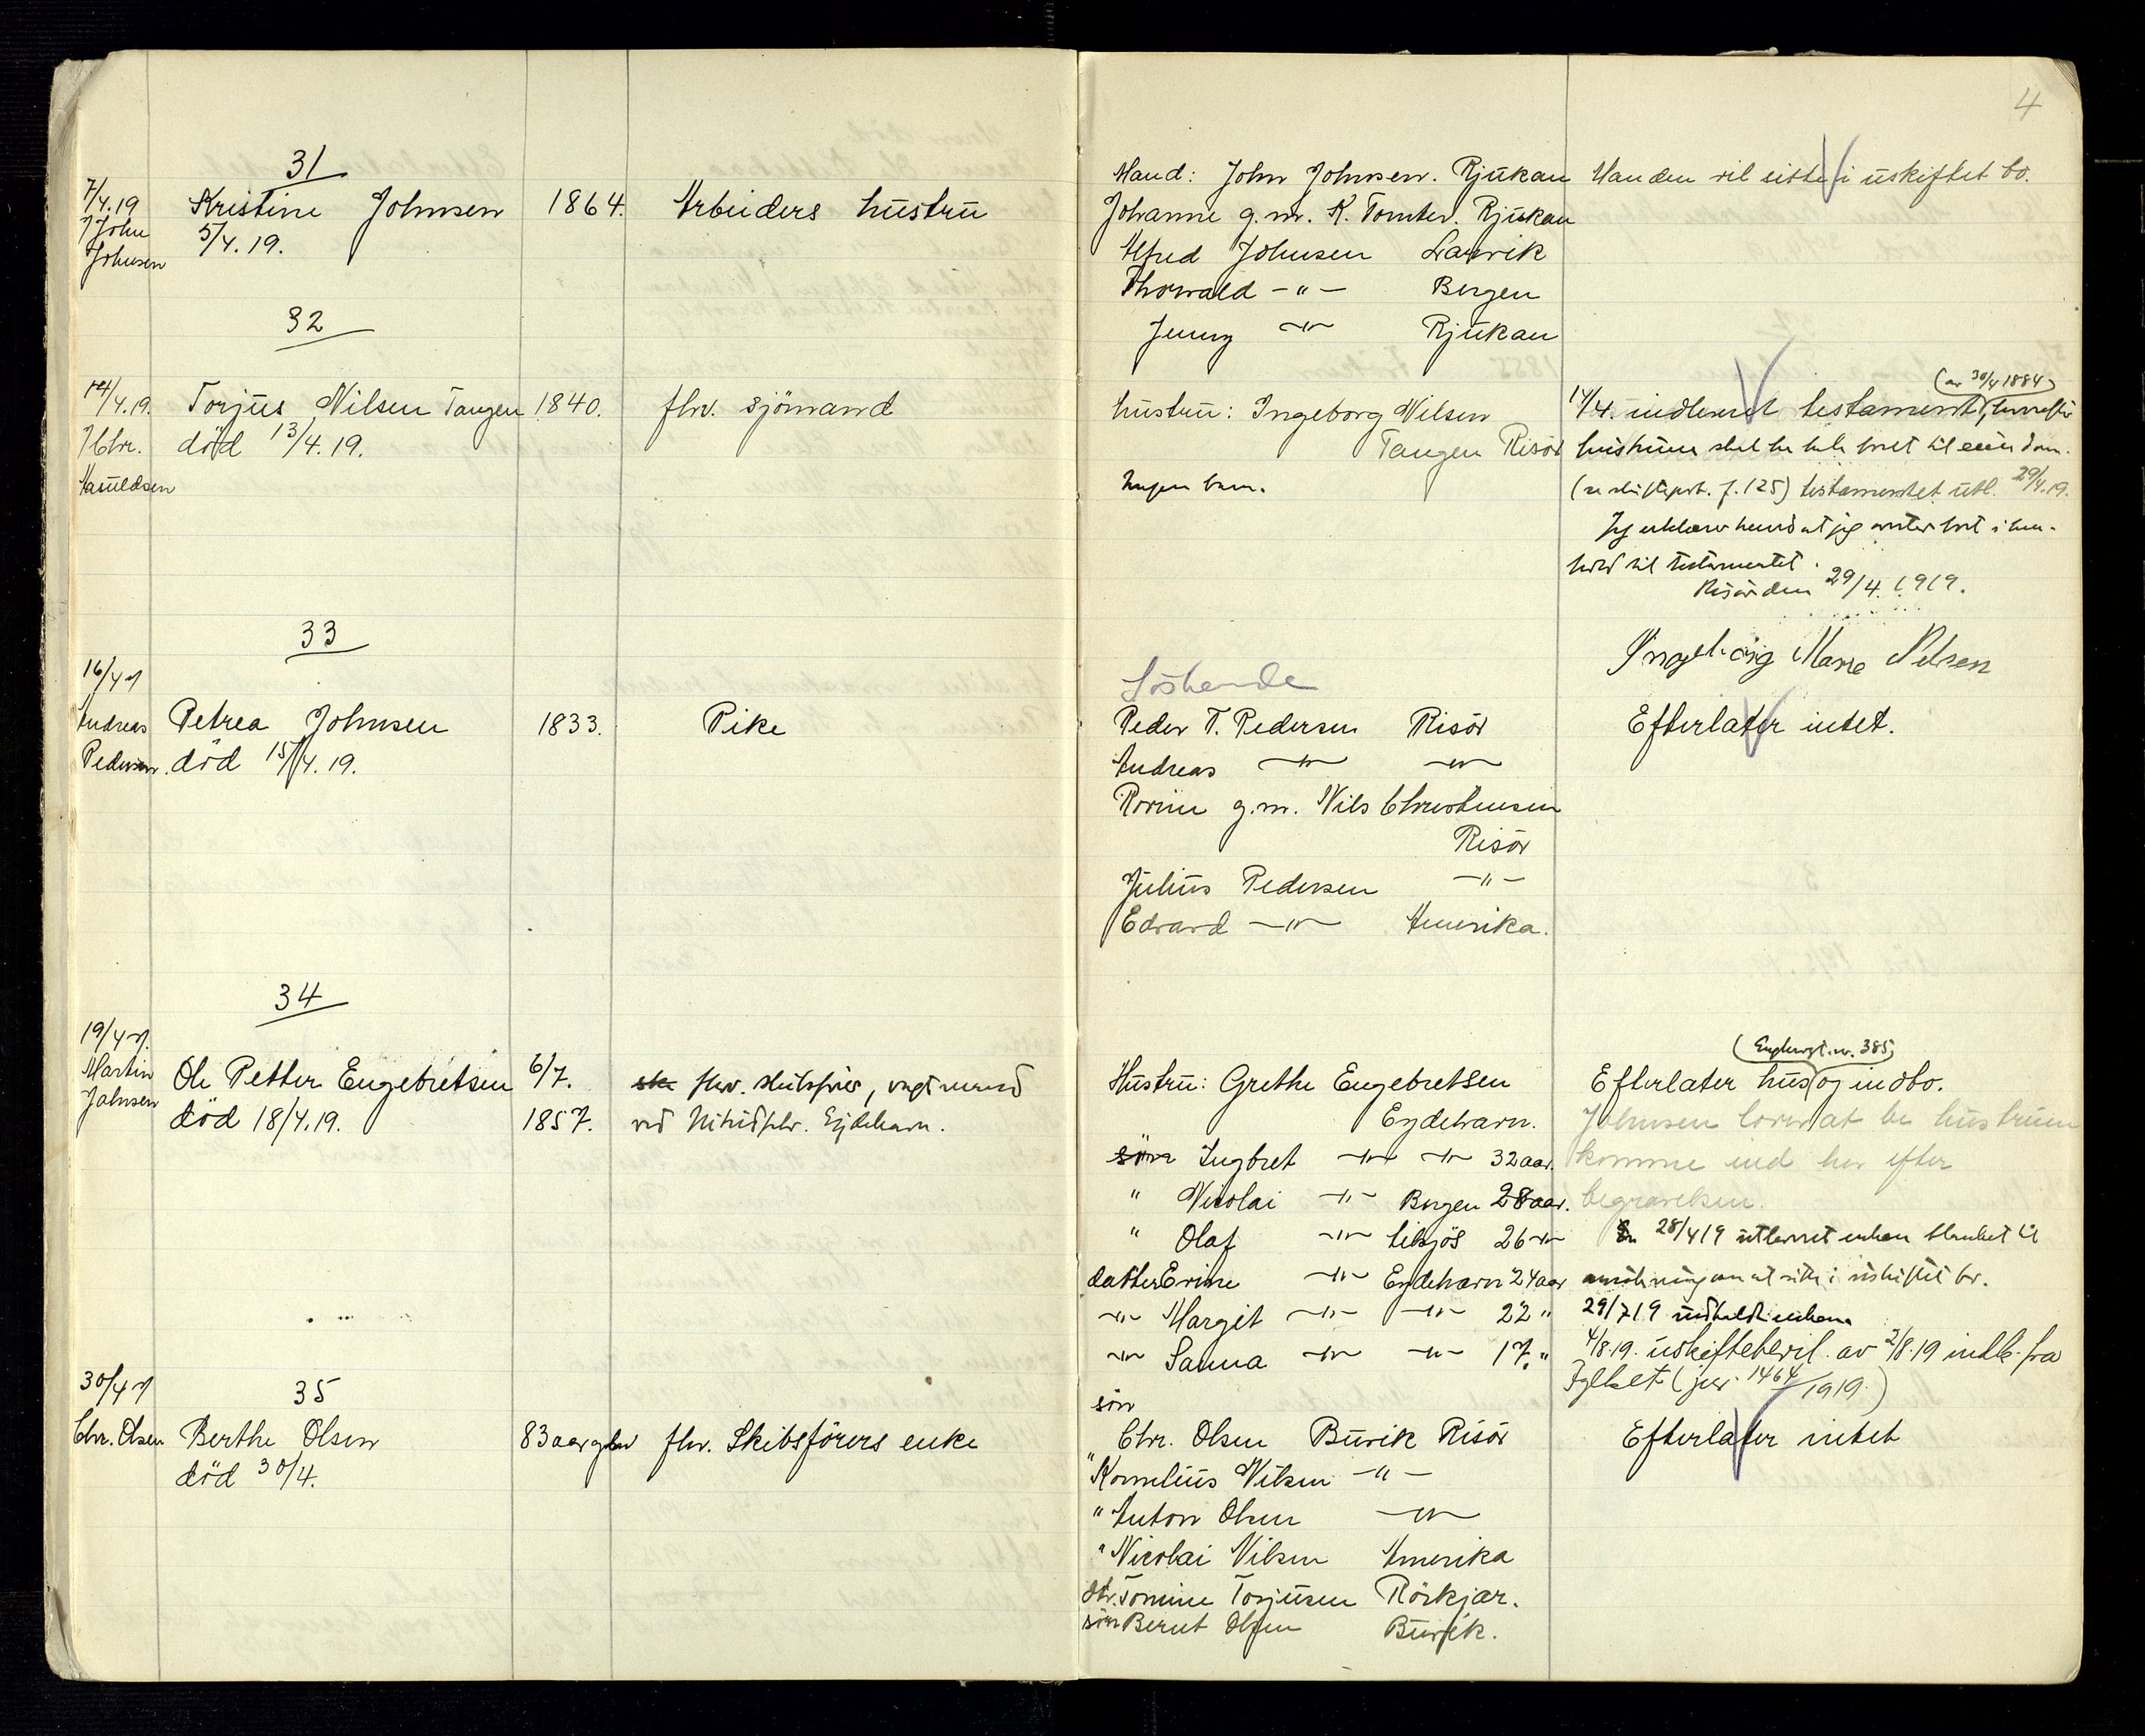 4
31
7/4.19
John
Johnsen
Kristine Johnsen
5/4.19.
1864.
Arbeiders hustru
Mand: John Johnsen. Rjukan
Johanne g.m. K. Tomter. Rjukan
Alfred Johnsen Larvik
Thorvald -"- Bergen
Jenny -"- Rjukan
Manden vil sitte i uskiftet bo.
32
14/4.19.
Chr.
Torjus Nilsen Tangen
død 13/4.19.
1840.
fhv. sjömand
Hustru: Ingeborg Nilsen
Tangen Risör
Ingen barn.
(av 30/4 1884)
14/4. indlevert testament, hvorefter
hustruen skal ha hele boet til eiendom.
(se skifteprt. f. 125) testamentet utl. 29/4.19.
Jeg erklærer herved at jeg overtar boet i hen-
hold til testamentet.
Risör den 29/4.1919.
Ingeborg Marie Nilsen
33
16/4 19
Andreas
Pedersen.
Petrea Johnsen
död 15/4.19.
1833.
Pike
Söskende
Peder T. Pedersen Risör
Andreas -"- -"-
g.m. Nils Christensen
Risör
Julius Pedersen -"-
Edvard -"- Amerika.
Efterlater intet.
34
19/4 19.
Martin
Johnsen
Ole Petter Engebretsen
död 18/4.19.
6/7.
1857.
fhv. skibsfører, vagtmand
ved Nitridfabr. Eydehavn.
Hustru: Grethe Engebretsen
Eydehavn.
sön Ingbret -"- -"- 32 aar.
" Nicolai -"- Bergen 28 aar.
" Olaf -"- 26 -"-
datter -"- Eydehavn 24 aar
-"- Margit -"- -"- 22 "
-"- Sanna -"- -"- 17. "
385
Efterlater hus og indbo.
Johnsen lovet at be hustruen
komme ind her efter
begravelsen.
28/4 19 utlevert enken blanket til
ansökning om at sitte i uskiftet bo.
29/7 19 indkaldt enken
4/8.19. uskiftebevil. av 2/8.19 indk. fra
Fylket (jnr. 1464/1919.)
30/4 19
Chr. Olsen
35
Berthe Olsen
död 30/4.
83 aar gl.
fhv. Skibsförers enke
sön
Chr. Olsen Buvik Risör
" Kornelius Nilsen -"-
" Anton Olsen -"-
" Nicolai Nilsen Amerika
dtr. Tomine Torjusen Rörkjær.
sön Bernt Olsen Buvik.
Efterlater intet